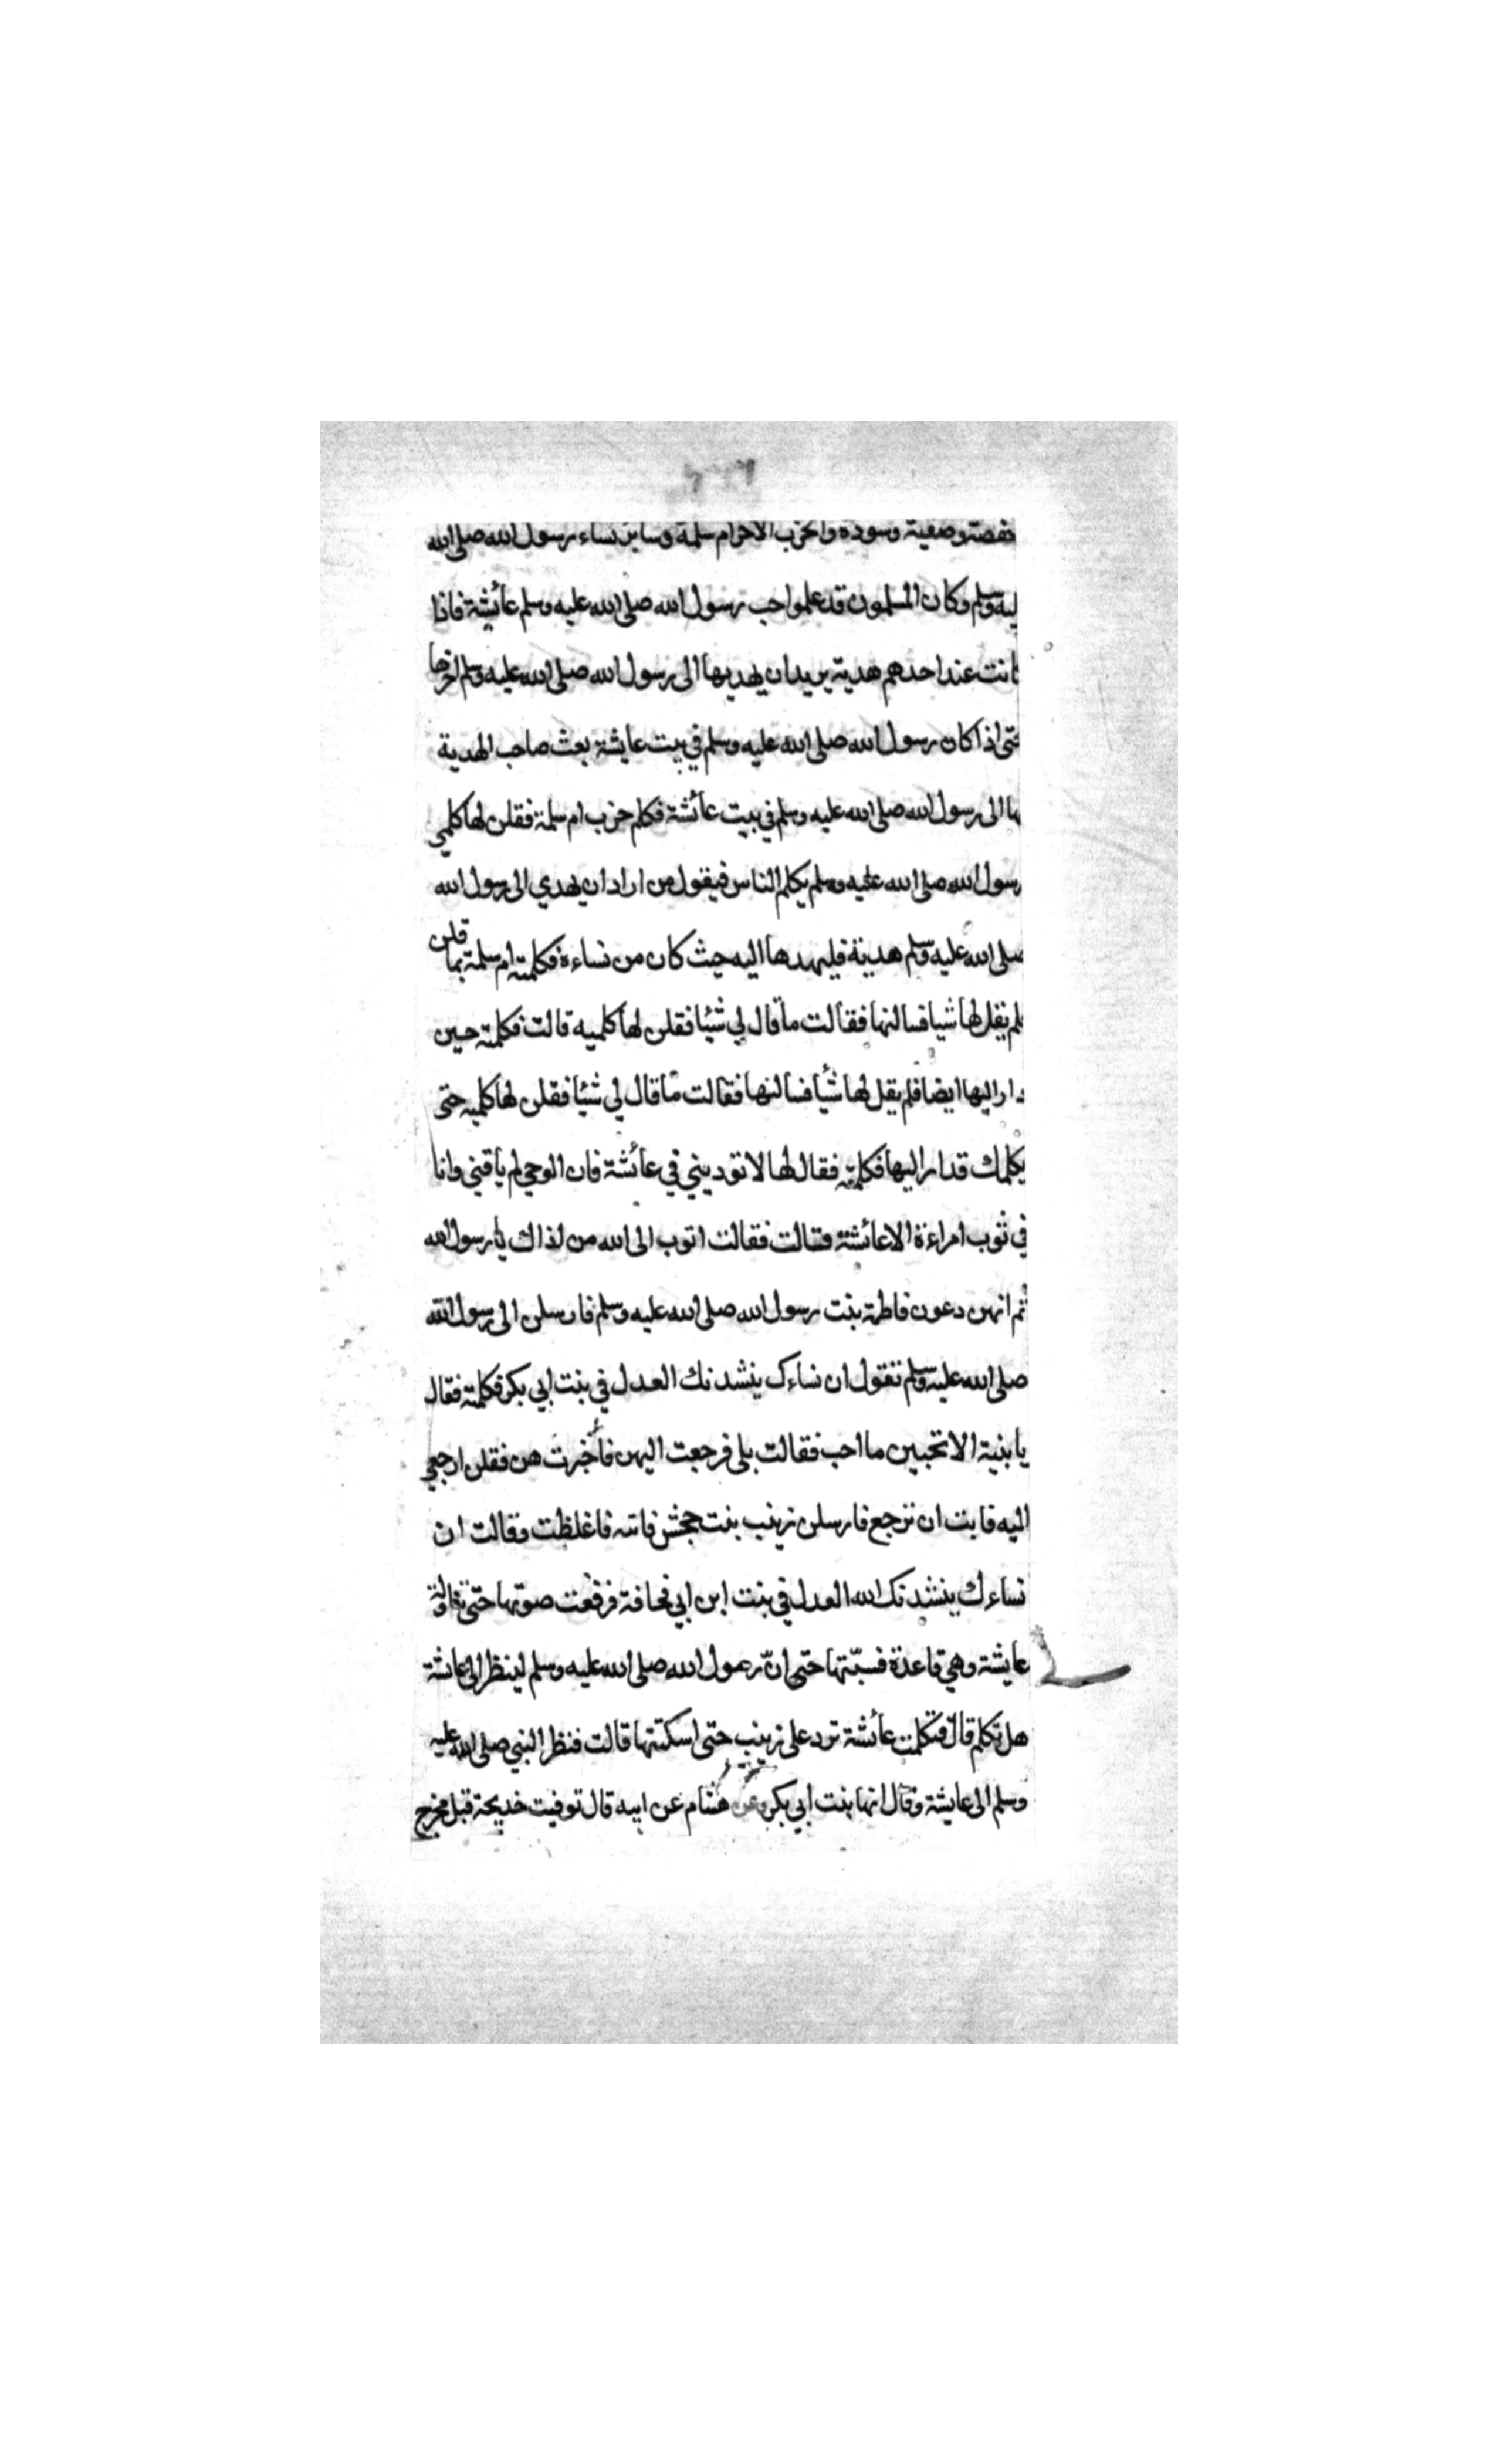 حفصة وصفية وسودة والحزب الاخر ام سلمة وساير نساء رسول الله صلى الله
ليه وسلم وكان المسلمون قد علموا حب رسول الله صلى الله عليه وسلم عائشة فاذا
كانت عند احدهم هدية يريد ان يهديها الى رسول الله صلى الله عليه وسلم اخرها
حتى اذا كان رسول الله صلى الله عليه وسلم في بيت عايشة بعث صاحب الهدية
بها الى رسول الله صلى الله عليه وسلم في بيت عائشة فكلم حزب ام سلمة فقلن لها كلمي
رسول الله صلى الله عليه وسلم يكلم الناس فيقول من اراد ان يهدي الى رسول الله
صلى الله عليه وسلم هدية فليهدها اليه حيث كان من نساءه فكلمته ام سلمة بما قلن
فلم يقل لها شيا فسالنها فقالت ما قال لي شيئا فقلن لها كلميه قالت فكلمته حين
دار اليها ايضا فلم يقل لها شيأ فسالنها فقالت ما قال لي شيئا فقلن لها كلميه حتى
يكلمك قدار اليها فكلمته فقال لها لا توديني في عائشة فان الوحي لم ياقني وانا
في ثوب امراءة الا عائشة فتالت فقالت اتوب الى الله من لذاك يا رسول الله
ثم انهن دعون فاطمة بنت رسول الله صلى الله عليه وسلم فارسلن الى رسول الله
صلى الله عليه وسلم تقول ان نساءك ينشدنك العدل في بنت ابي بكر فكلمته فقال
يا بنية الا تحبين ما احب فقالت بلى فرجعت اليهن فأخبرت هن فقلن ارجعي
اليه فابت ان ترجع فارسلن زينب بنت جحش فاتته فاغلظت وقالت ان
نساءك ينشدنك الله العدل في بنت ابن ابي قحافة فرفعت صوتها حتى تناولة
عايشة وهي قاعدة فسبّتها حتى انّ رسول الله صلى الله عليه وسلم لينظر الى عائشة
هل تكلم قال فتكلمت عائشة ترد على زينب حتى اسكتتها قالت فنظر النبي صلى الله عليه
وسلم الى عايشة وقال انها بنت ابي بكر وعن هشام عن ابيه قال توفيت خديجة قبل مخرج